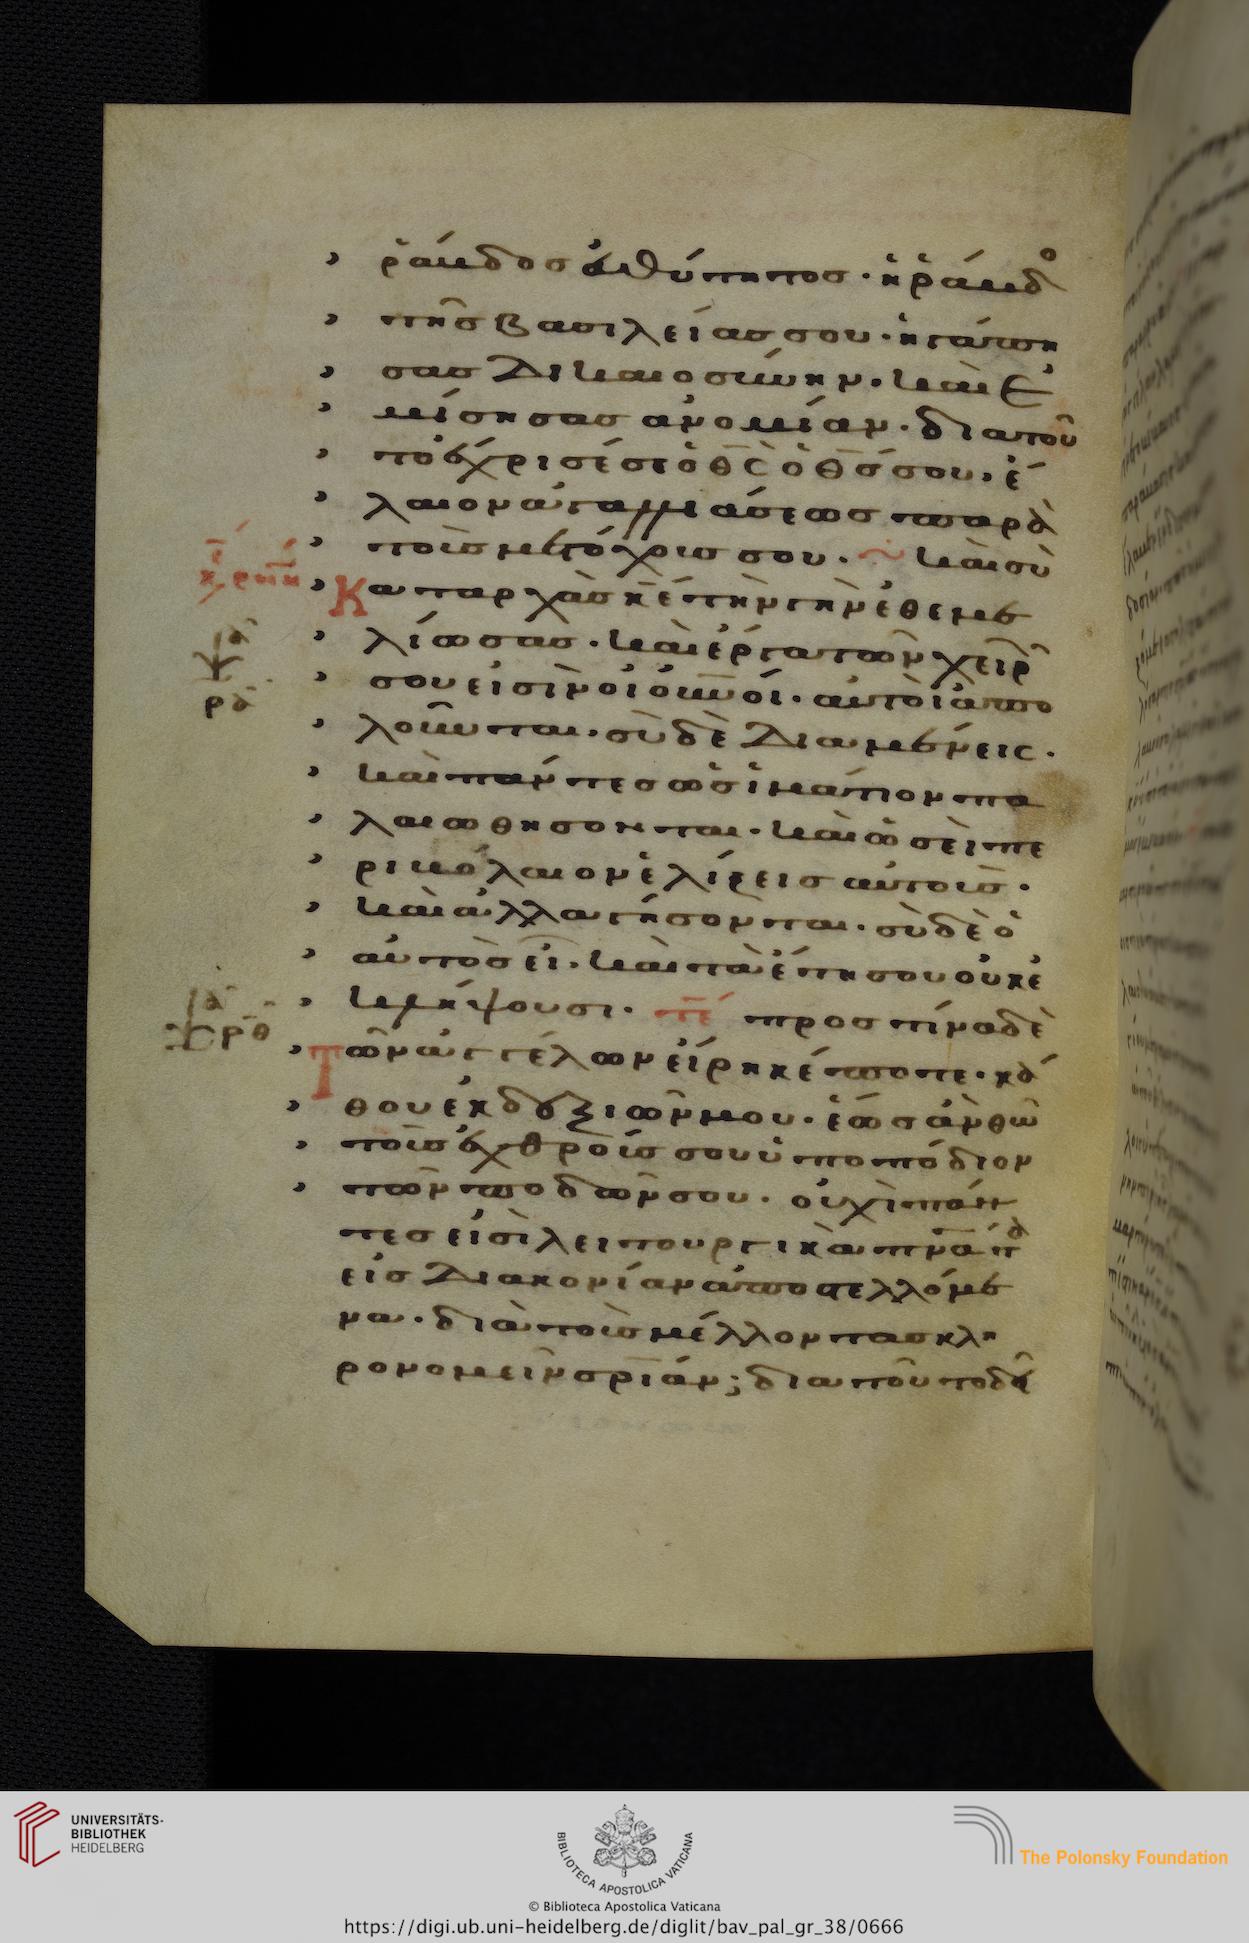 ῥάβδος εὐθύτητος· ἡ ῥάβδο
τῆς βασιλείας σου· ἠγάπη
σας δικαιοσύνην· καὶ ἐ
μίσησας ἀνομίαν· διατοῦ
το ἔχρισέ σε ὁ θ̅ς̅ ὁ θ̅ς̅ σου· ἔ
λαιον ἀγαλλιάσεως παρὰ
τοὺς μετόχους σου· καὶ σὺ
Κατ αρχὰς κ̅ε̅ τὴν γῆν ἐθεμε
λίωσας· καὶ ἔργα τῶν χειρ
σου εἰσὶν οἱ οὐνοί· αὐτοὶ ἀπο
λοῦνται· σὺ δὲ διαμένεις·
καὶ πάντες ὡς ἱμάτιον πα
λαιωθησονται· καὶ ὡσεὶ πε
ριβόλαιον ἑλίξεις αὐτούς·
καὶ ἀλλαγήσονται· σὺ δὲ ὁ
αὐτὸς εἶ· καὶ τὰ ἔτη σου οὐκ ἐ
κλείψουσι· τε προς τίνα δὲ
Τῶν ἀγγέλων εἴρηκέ ποτε· κά
θου ἐκ δεξιῶν μου· ἕως ἂν θῶ
τοὺς ἐχθρούς σου ὑποπόδιον
τῶν ποδῶν σου· οὐχὶ πάν
τες εἰσὶ λειτουργικὰ πν̅α̅τα
εἰς διακονίαν ἀποστελλόμε
να· διὰ τοὺς μέλλοντας κλη
ρονομεῖν σ̅ρ̅ιάν; διατοῦτο δεῖ
ψα
ρα
ψα ρθ
UNIVERSITÄTS-
BIBLIOTHEK
HEIDELBERG
BIBLIOTECA APOSTOLICA VATICANA
The Polonsky Foundation
© Biblioteca Apostolica Vaticana
https://digi.ub.uni-heidelberg.de/diglit/bav_pal_gr_38/0666